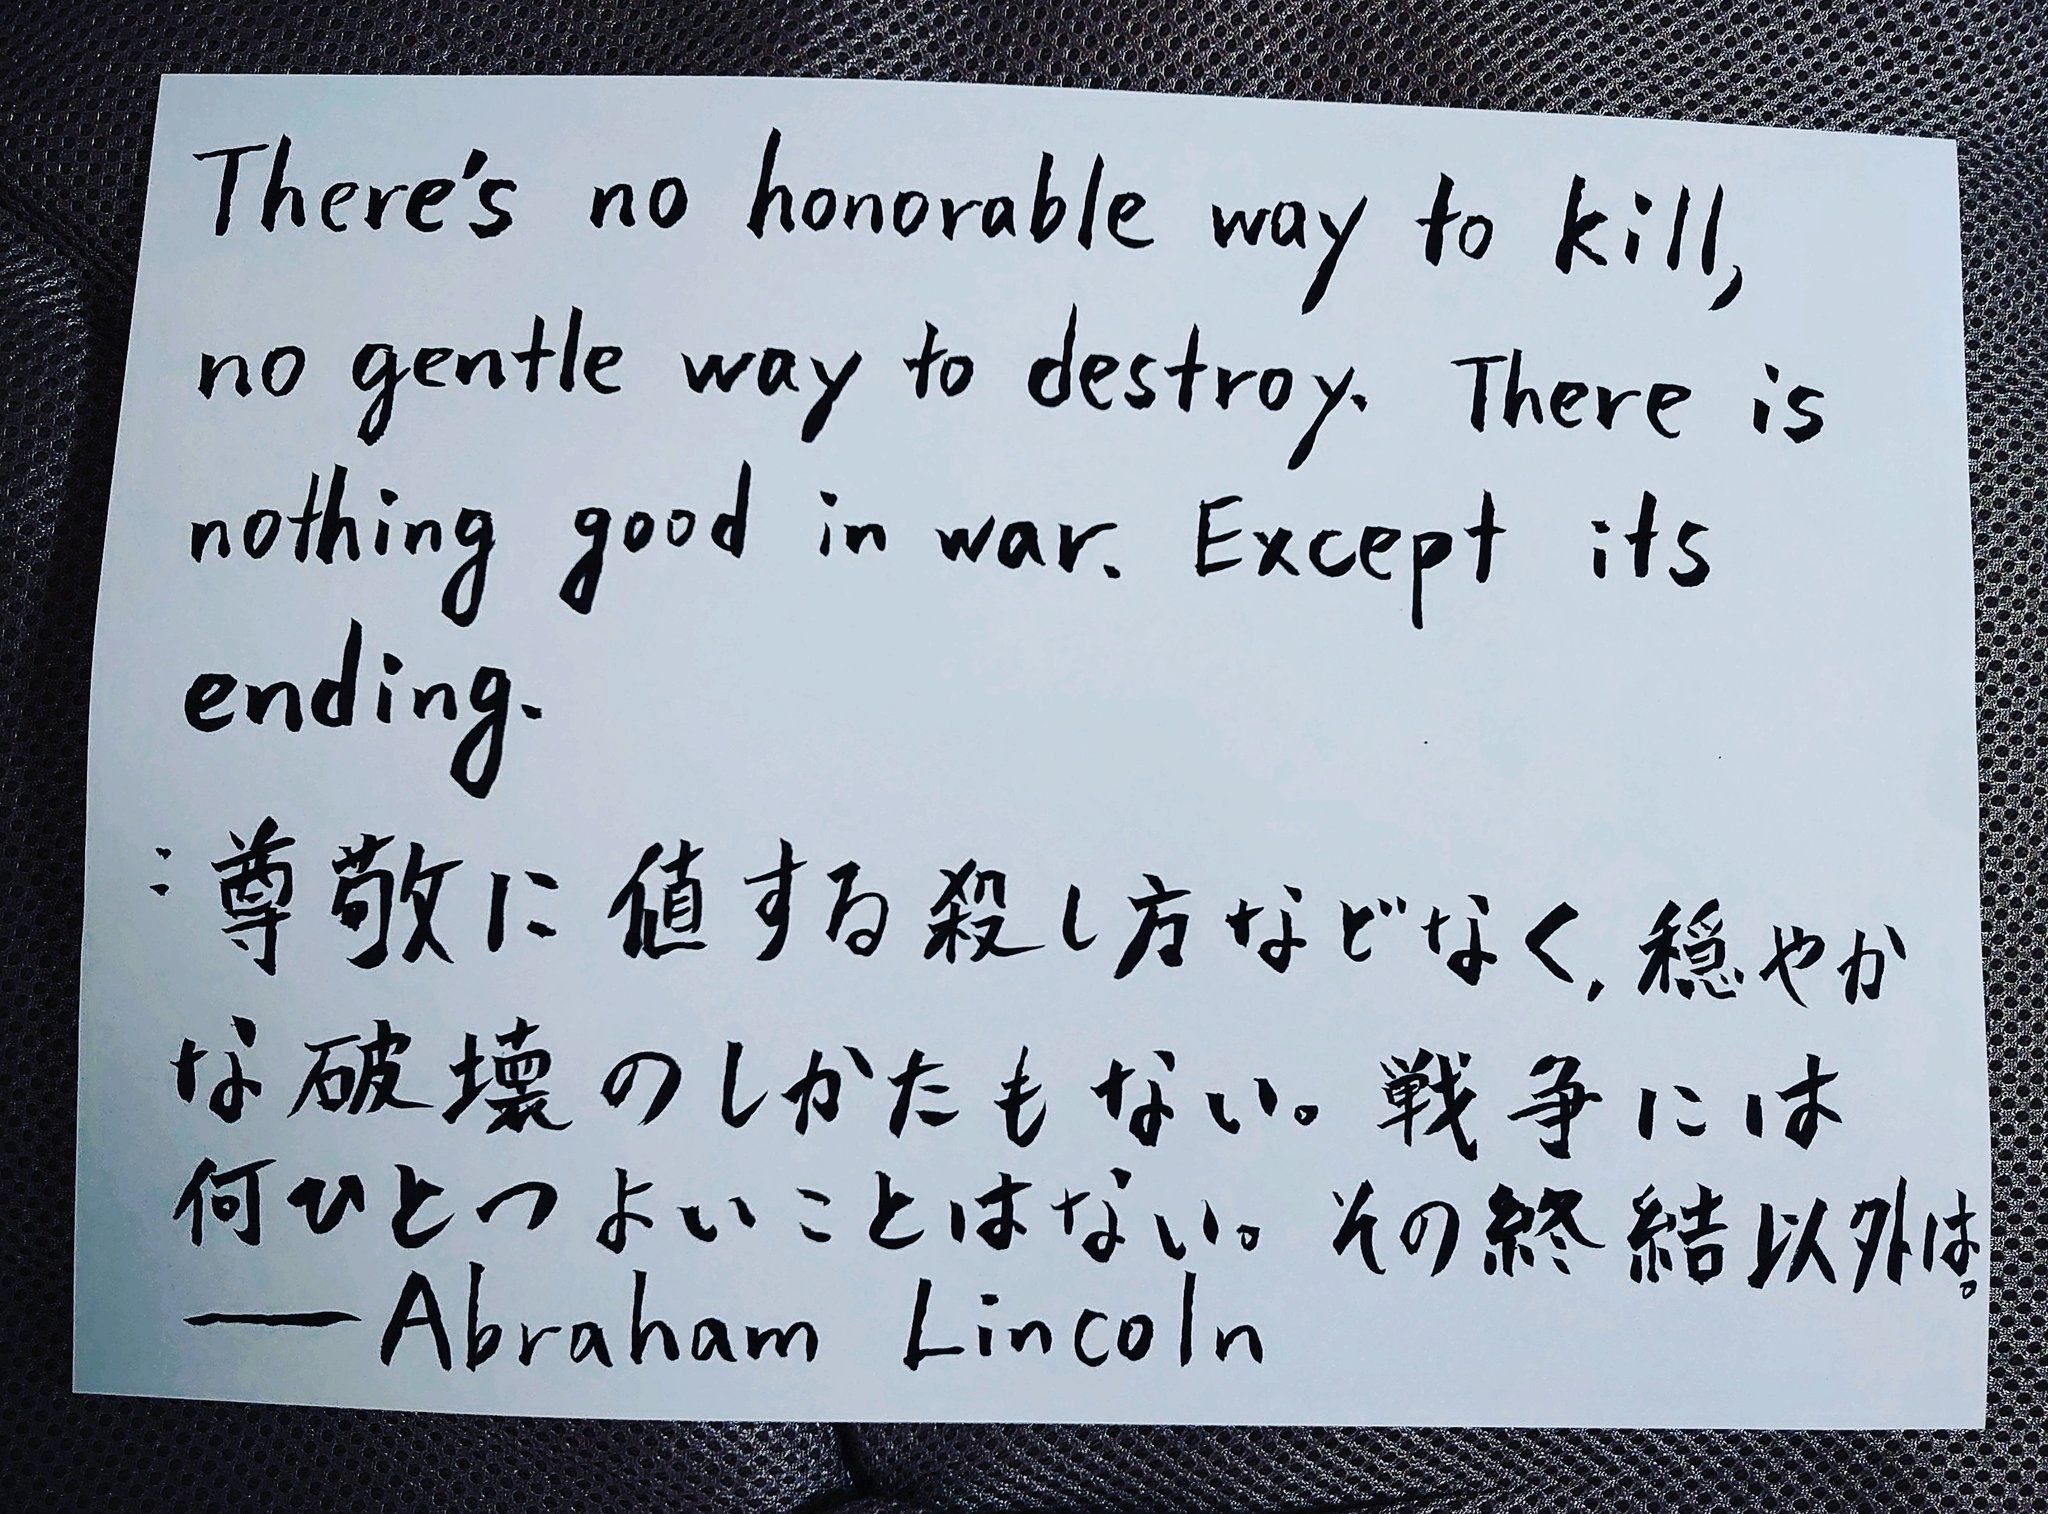 There's no honorable way to kill,
no gentle way to destroy. There is
nothing good in war. Except its
ending.
:尊敬に値する殺し方などなく,穏やか
な破壊のしかたもない。戦争には
何ひとつよいことはない。その終結以外は。
—Abraham Lincoln